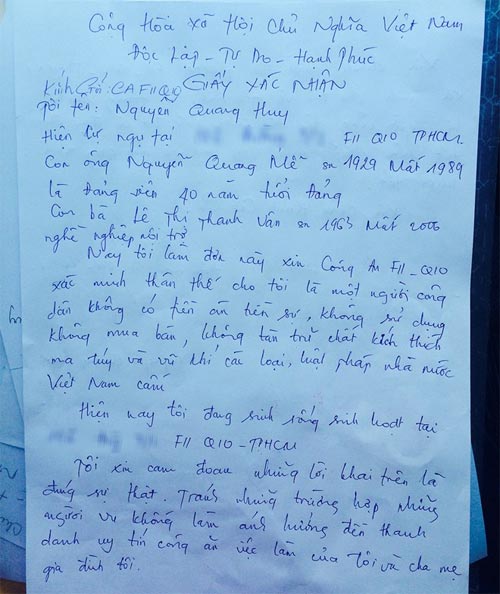 Cộng Hòa Xã Hội Chủ Nghĩa Việt Nam
Độc Lập - Tự Do - Hạnh Phúc
Kính Gởi: CA F11 Q10 GIẤY XÁC NHẬN
Tôi tên: Nguyễn Quang Huy
Hiện cư ngụ tại F11 Q10 TPHCM
Con ông Nguyễn Quang Mễ sn 1929 Mất 1989
là Đảng viên 40 năm tuổi Đảng
Con bà Lê Thị Thanh Vân sn 1963 Mất 2006
nghề nghiệp nội trợ
Nay tôi làm đơn này xin Công An F11 - Q10
xác minh thân thế cho tôi là một người công
dân không có tiền án tiền sự, không sử dụng
không mua bán, không tàn trữ chất kích thích
ma túy và vũ khí các loại, luật pháp nhà nước
Việt Nam cấm
Hiện nay tôi đang sinh sống sinh hoạt tại
F11 Q10 - TPHCM
Tôi xin cam đoan những lời khai trên là
đúng sự thật. Tránh những trường hợp những
người vu không làm ảnh hưởng đến thanh
danh uy tín công ăn việc làm của tôi và cha mẹ
gia đình tôi.